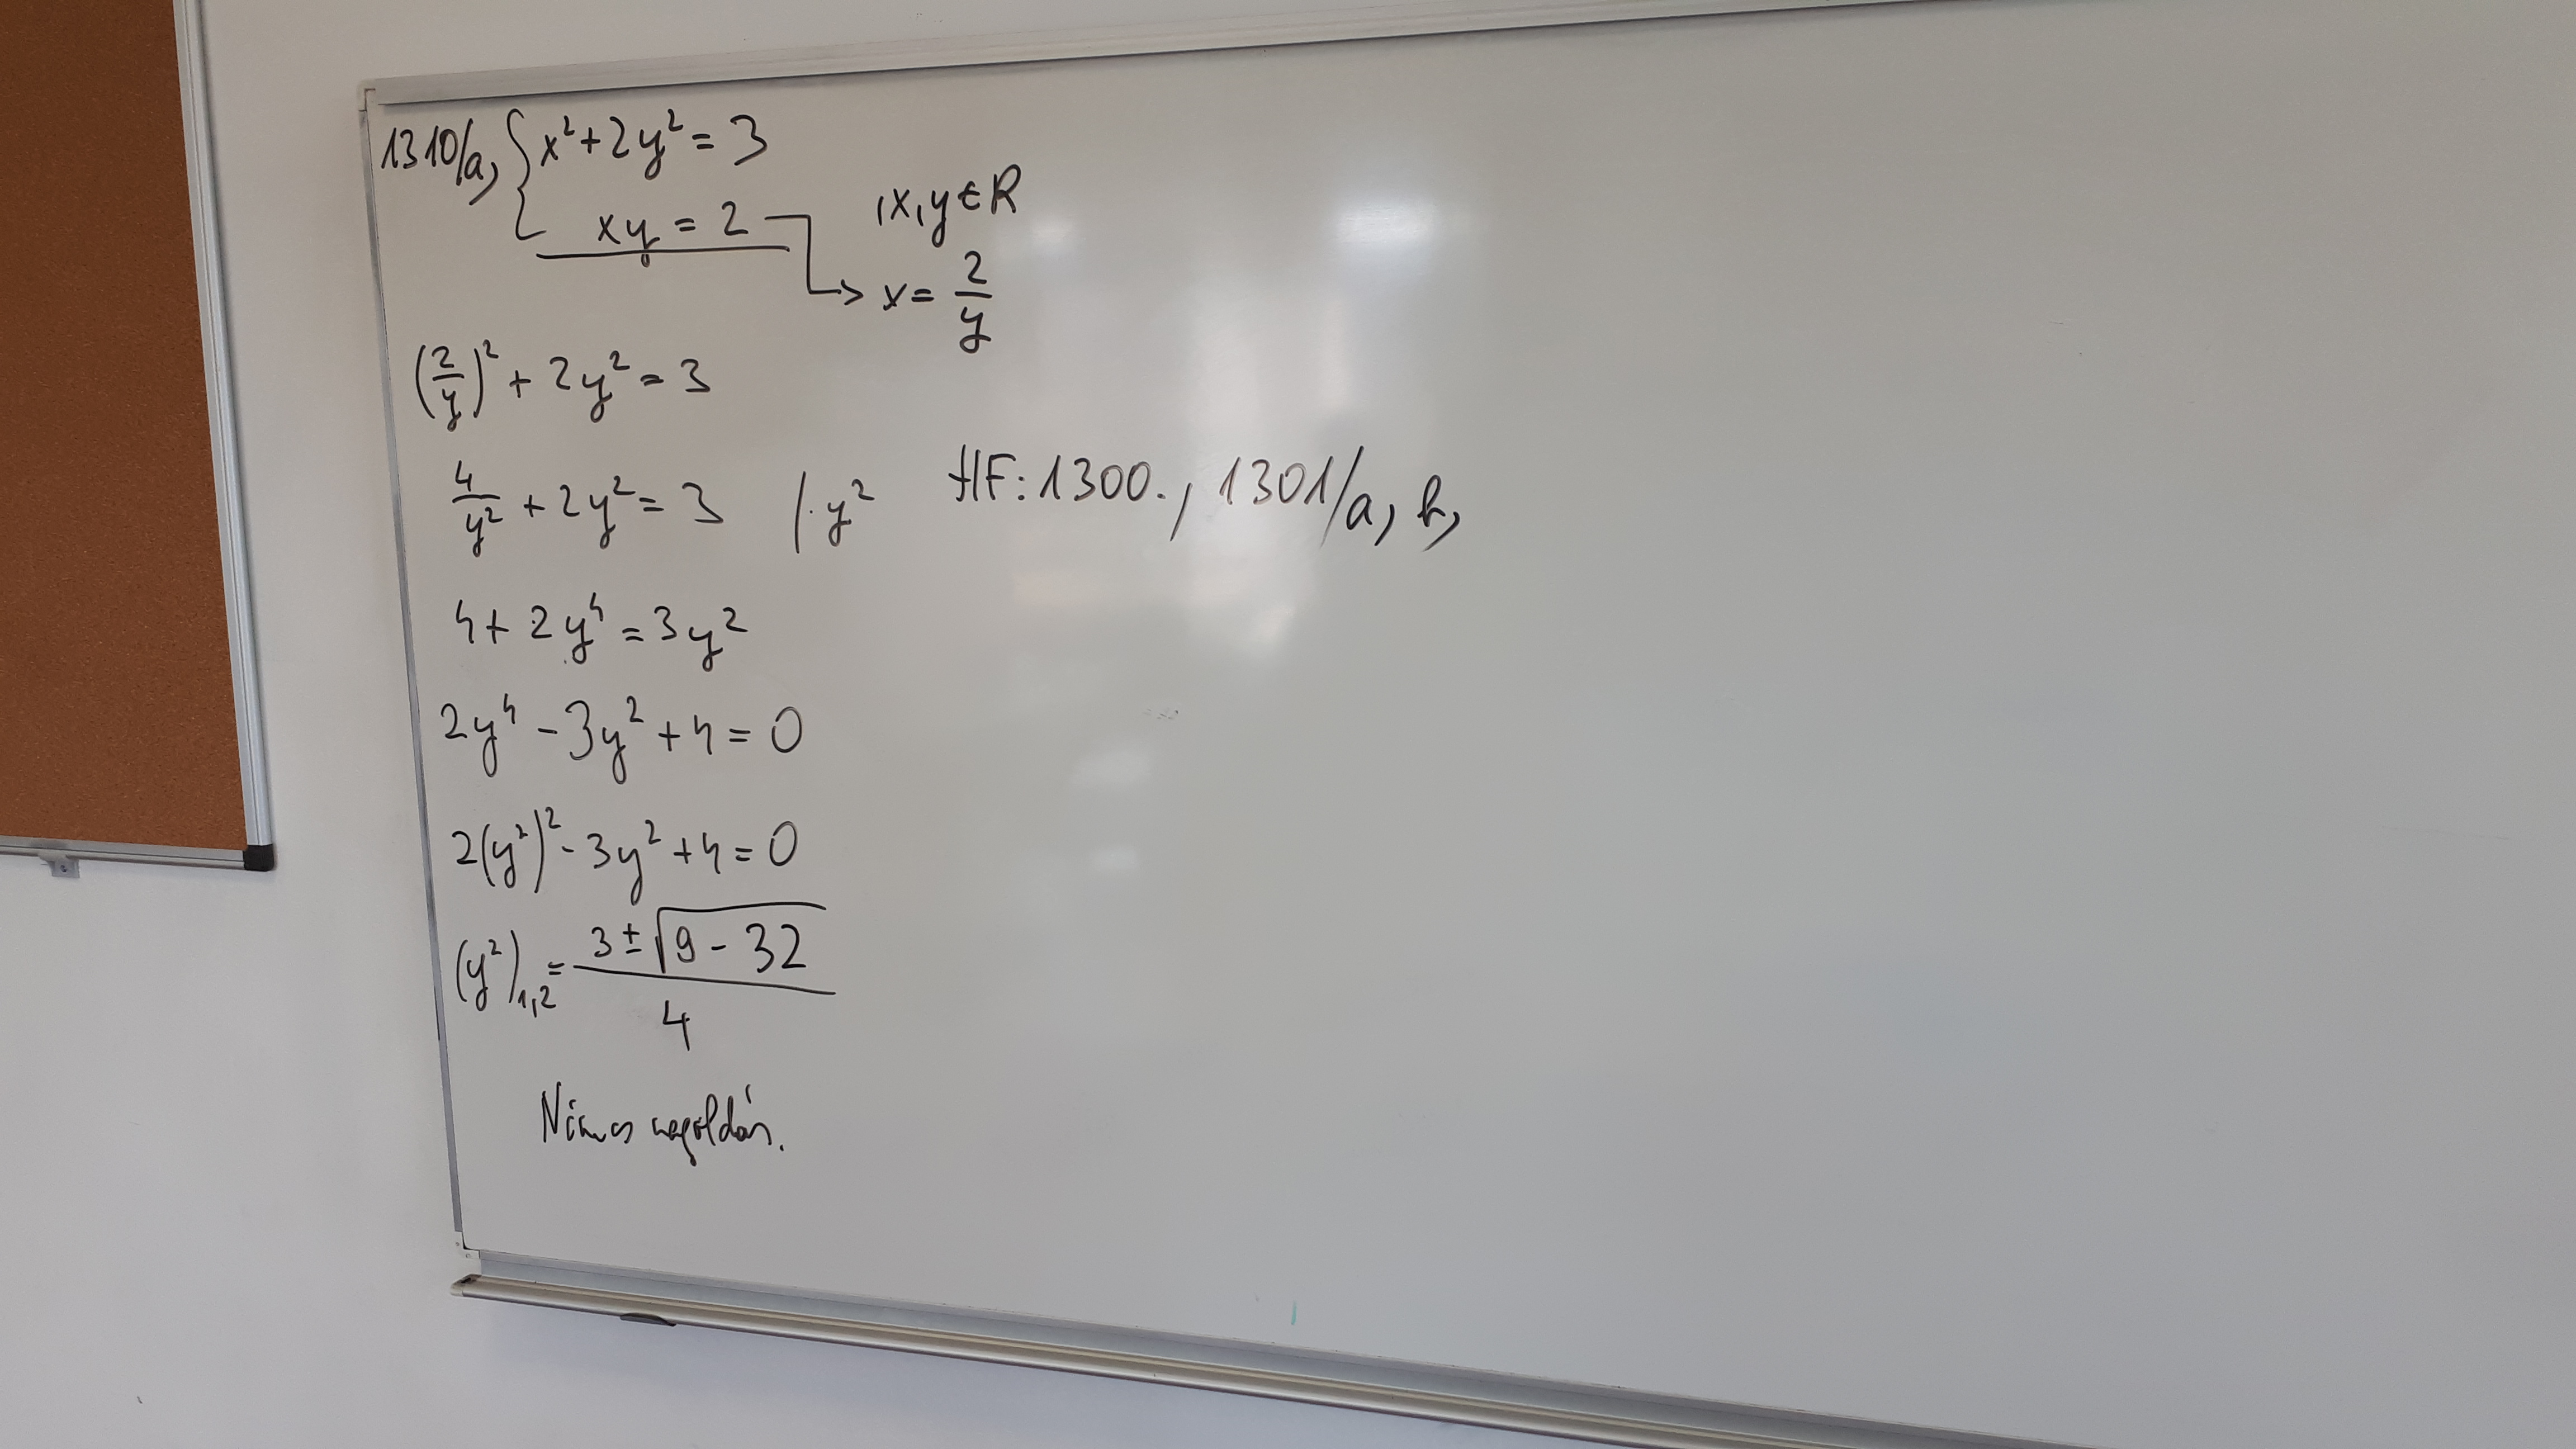 1310/a, { x² + 2y² = 3
xy = 2
, x, y ∈ R
→ x = 2/y
(2/y)² + 2y² = 3
4/y² + 2y² = 3 / · y²
HF: 1300., 1301/a, b,
4 + 2y⁴ = 3y²
2y⁴ - 3y² + 4 = 0
2(y²)² - 3y² + 4 = 0
(y²)₁,₂ = (3 ± √(9 - 32))/4
Nincs megoldás.